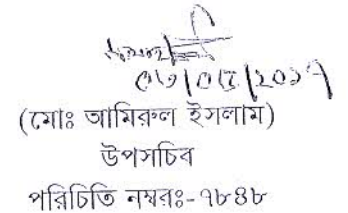 ০৩/০৫/২০১৭
(মোঃ আমিরুল ইসলাম)
উপসচিব
পরিচিতি নম্বরঃ-৭৮৪৮